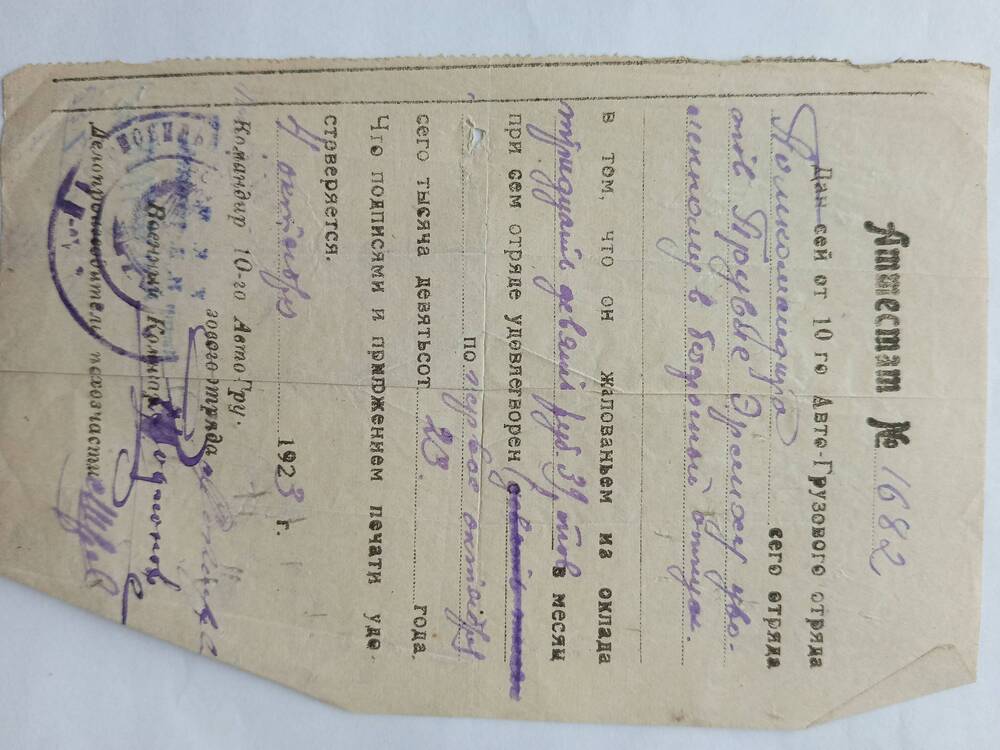 Аттестат № 1682
Дан сей от 10 го Авто-Грузового отряда
сего отряда
тов Эрниху уво-
ленному в безсрочный отпуск.
в том, что он жалованьем из оклада
тридцать девять руб. 39, тов в месяц
при сем отряде удовлетворен
по первое октября
сего тысяча девятьсот 23. года.
Что подписями и приложением печати удо-
стоверяется.
4 октября 1923 г.
Командир 10-го АвтоГру-
зового отряда
Военный Комиссар
Делопроизводитель по хозчасти